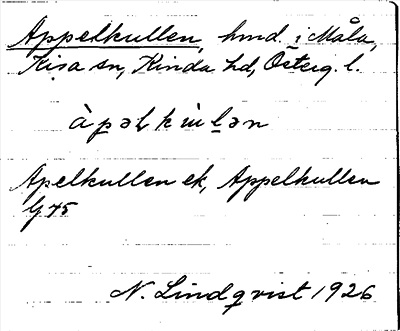 Appelkullen, hmd. i Måla,
Kisa sn, Kinda hd, Österg. l.
àpəl kùlən
Apelkullen ek, Appelkullen
G 45
N. Lindqvist 1926